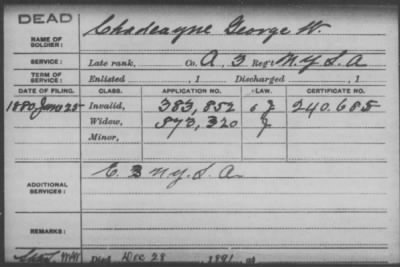 DEAD
NAME OF SOLDIER: Chadeayne George W.
SERVICE: Late rank, Co. A, 3 Reg't N.Y.L.A
TERM OF SERVICE: Enlisted , 1 Discharged , 1
DATE OF FILING. CLASS. APPLICATION NO. LAW. CERTIFICATE NO.
1880 June 25 Invalid, 383,852 240.685
Widow, 573,320
Minor,
ADDITIONAL SERVICES: E. 3 N.Y.L.A.
REMARKS:
Died Dec 28, 1891, at